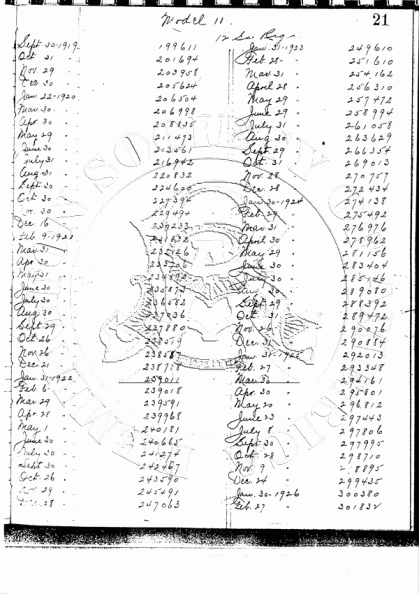 Model 11.
21
12 Ga Reg
Sept 30-1919- 199611
Oct 31 - 201694
Nov. 29 - 203958
Dec 30 - 205624
Jan 22-1920- 206504
Mar 30 - 206998
Apr. 30 - 208835
May 29 - 211473
June 30 - 213561
July 31 - 216942
Aug 31 - 220832
Sept. 30 - 224600
Oct 30 - 227394
30 - 229494
Dec 16 - 239233
Feb 9-
Mar 31
Apr 30
May 31
June 30
July 30 - 236582
Aug 30
Sept 29 - 237880
Oct 26
Nov 26
Dec 21 - 238718
Jan 31-1922 - 239011
Feb. 6 - 239018
Mar 29 - 239591
Apr 28 - 239968
May 1 - 240181
June 30 - 240665
July 30 - 241274
Sept 30 - 242467
Oct 26 - 243590
Nov 29 - 245491
Dec. 28 - 247063
Jan. 31-1923 - 249610
Feb. 28 - 251610
Mar 31 - 254162
April 28 - 256310
May 29 - 257472
June 29 - 258994
July 31 - 261058
Aug 30 - 263629
Sept 29 - 266354
Oct. 31 - 269013
Nov. 28 - 270757
Dec. 28 - 272434
Jan 30-1924 - 274138
Feb. 29 - 275492
Mar 31 - 276976
April 30 - 278962
May 29 - 281156
June 30 - 283404
July 30
30 - 289080
Sept 29 - 288392
Oct. 31 - 289472
Nov. 26 - 290276
Dec. 31 - 290884
Jan 31- - 292013
Feb. 27 - 293348
Mar 30 - 294761
Apr. 30 - 295801
May 20 - 296812
June 23 - 297443
July 8 - 297806
Sept 30 - 297995
Oct. 28 - 298710
Nov. 9 - 8895
Dec. 24 - 299435
Jan. 30-1926 300380
Feb. 27 - 301832